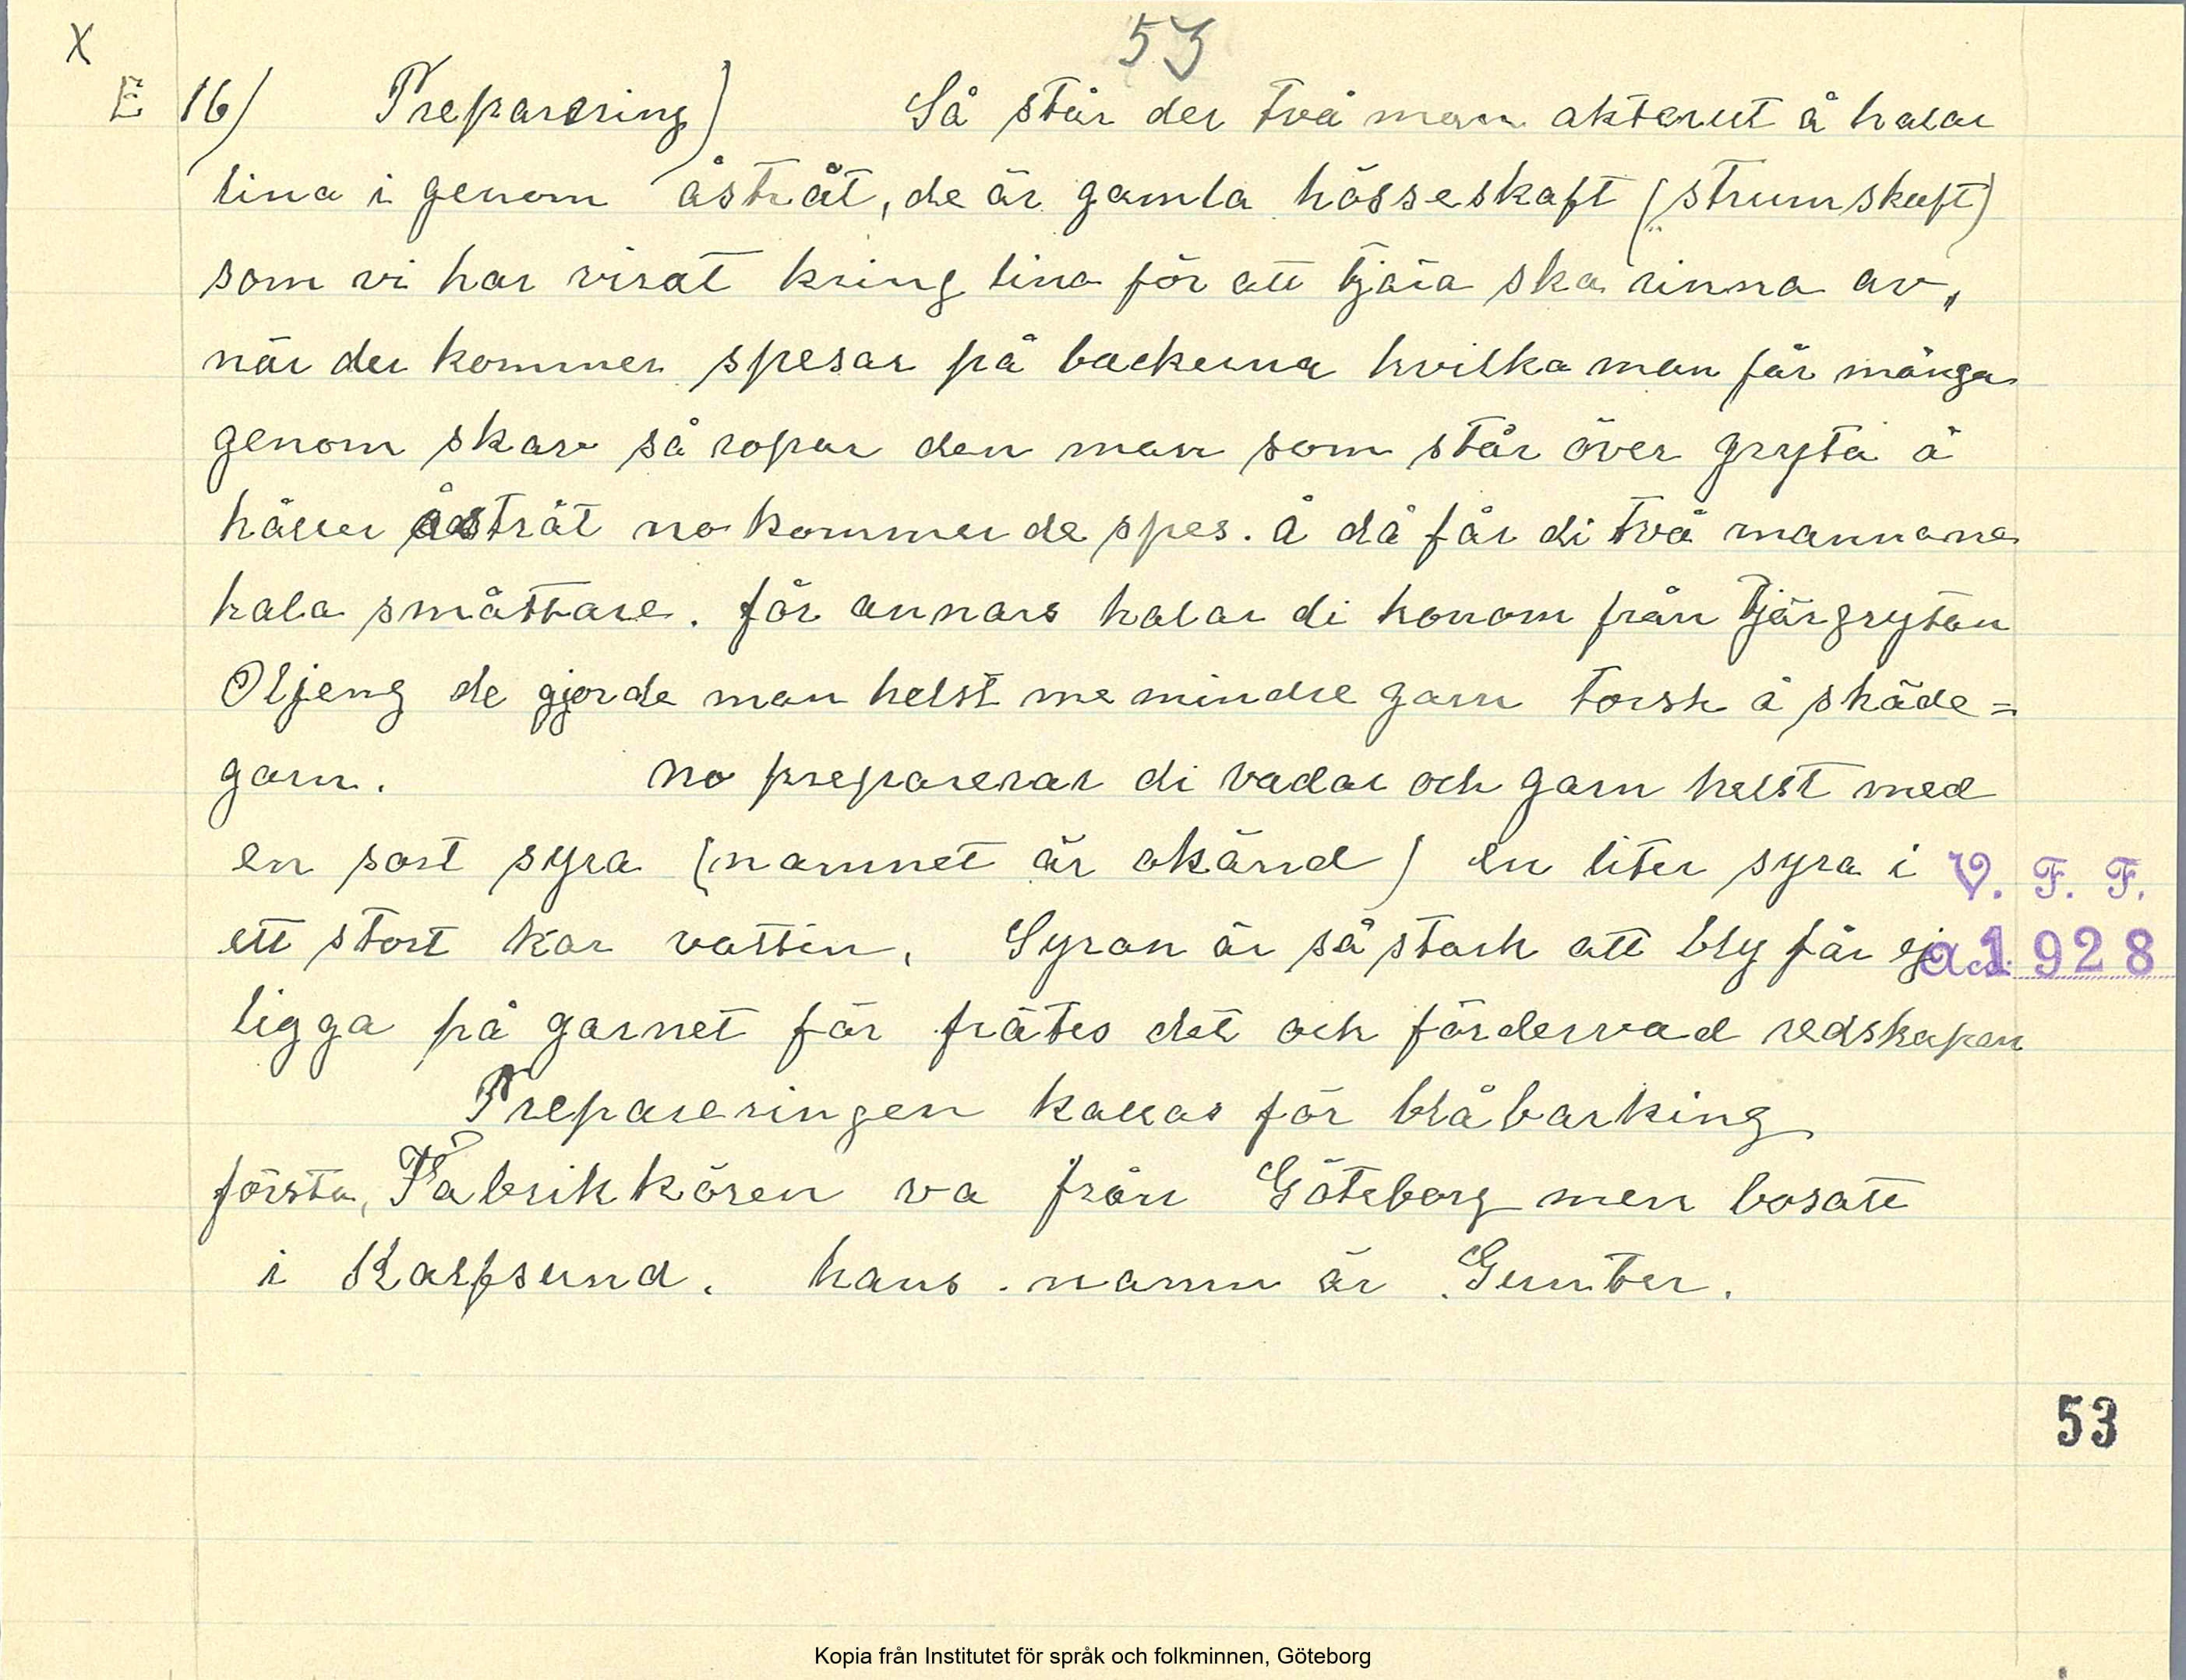 53
X
E 16) Preparering) Så står der två man akterut å halar
lina i genom åstråt, de är gamla hösseskaft (strumskaft)
som vi har virat kring lina för att tjära ska rinna av,
när der kommer spesar på backerna hvilka man får många
genom skarv så ropar den man som står över gryta å
håller åstråt no kommer de spes. å då får di två mannana
hala småttare. för annars halar di honom från tjärgrytan
Oljeng de gjorde man helst me mindre garn torsk å skäde=
garn. no preparerar di vadar och garn helst med
en sort syra (namnet är okänd) en liter syra i
ett stort kar vatten. Syran är så stark att bly får ej
ligga på garnet för frätes det och fördervad redskapen
Prepareringen kallas för blåbarking
första, Fabrikkören va från Göteborg men bosatt
i Kalfsund. hans namn är Gunter.
V. F. F.
acc. 1928
53
Kopia från Institutet för språk och folkminnen, Göteborg